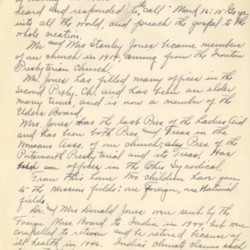 heard and responded to call "Mark 16:15 Go ye
into all the world, and preach the gospel to the
whole creation.
Mr. and Mrs Stanley Jones became members
of our church in 1919, coming from the Ironton
Presbyterian Church.
Mr. Jones has filled many offices in the
Second Presby. Ch. and has been an elder
many times, and is now a member of the
Elders Board.
Mrs Jones was the last Pres of the Ladies Aid
and has been both Pres and Treas in the
Missions Asso. of our church, also Pres of the
Portsmouth Presbyterial and its Treas. Has
an officer in the Ohio Synodical.
From this home two children have gone
to the Mission fields; one foreign, one National
fields.
Dr. and Mrs Donald Jones were sent by the
Foreign Miss. Board to India in 1944 but were
compelled to return because of
ill health in 1946. India's climate